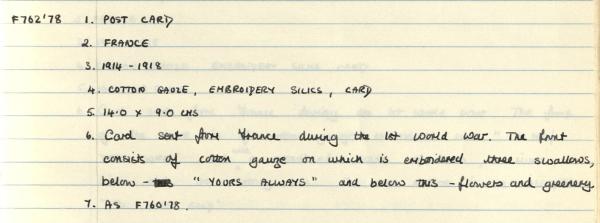 F762'78 1. POST CARD
2. FRANCE
3. 1914-1918
4. COTTON GAUZE, EMBROIDERY SILKS, CARD
5. 14.0 x 9.0 CMS
6. Card sent from France during the 1st World War. The front
consists of cotton gauze on which is embroidered three swallows,
below - "YOURS ALWAYS" and below this - flowers and greenery.
7. AS F760'78.